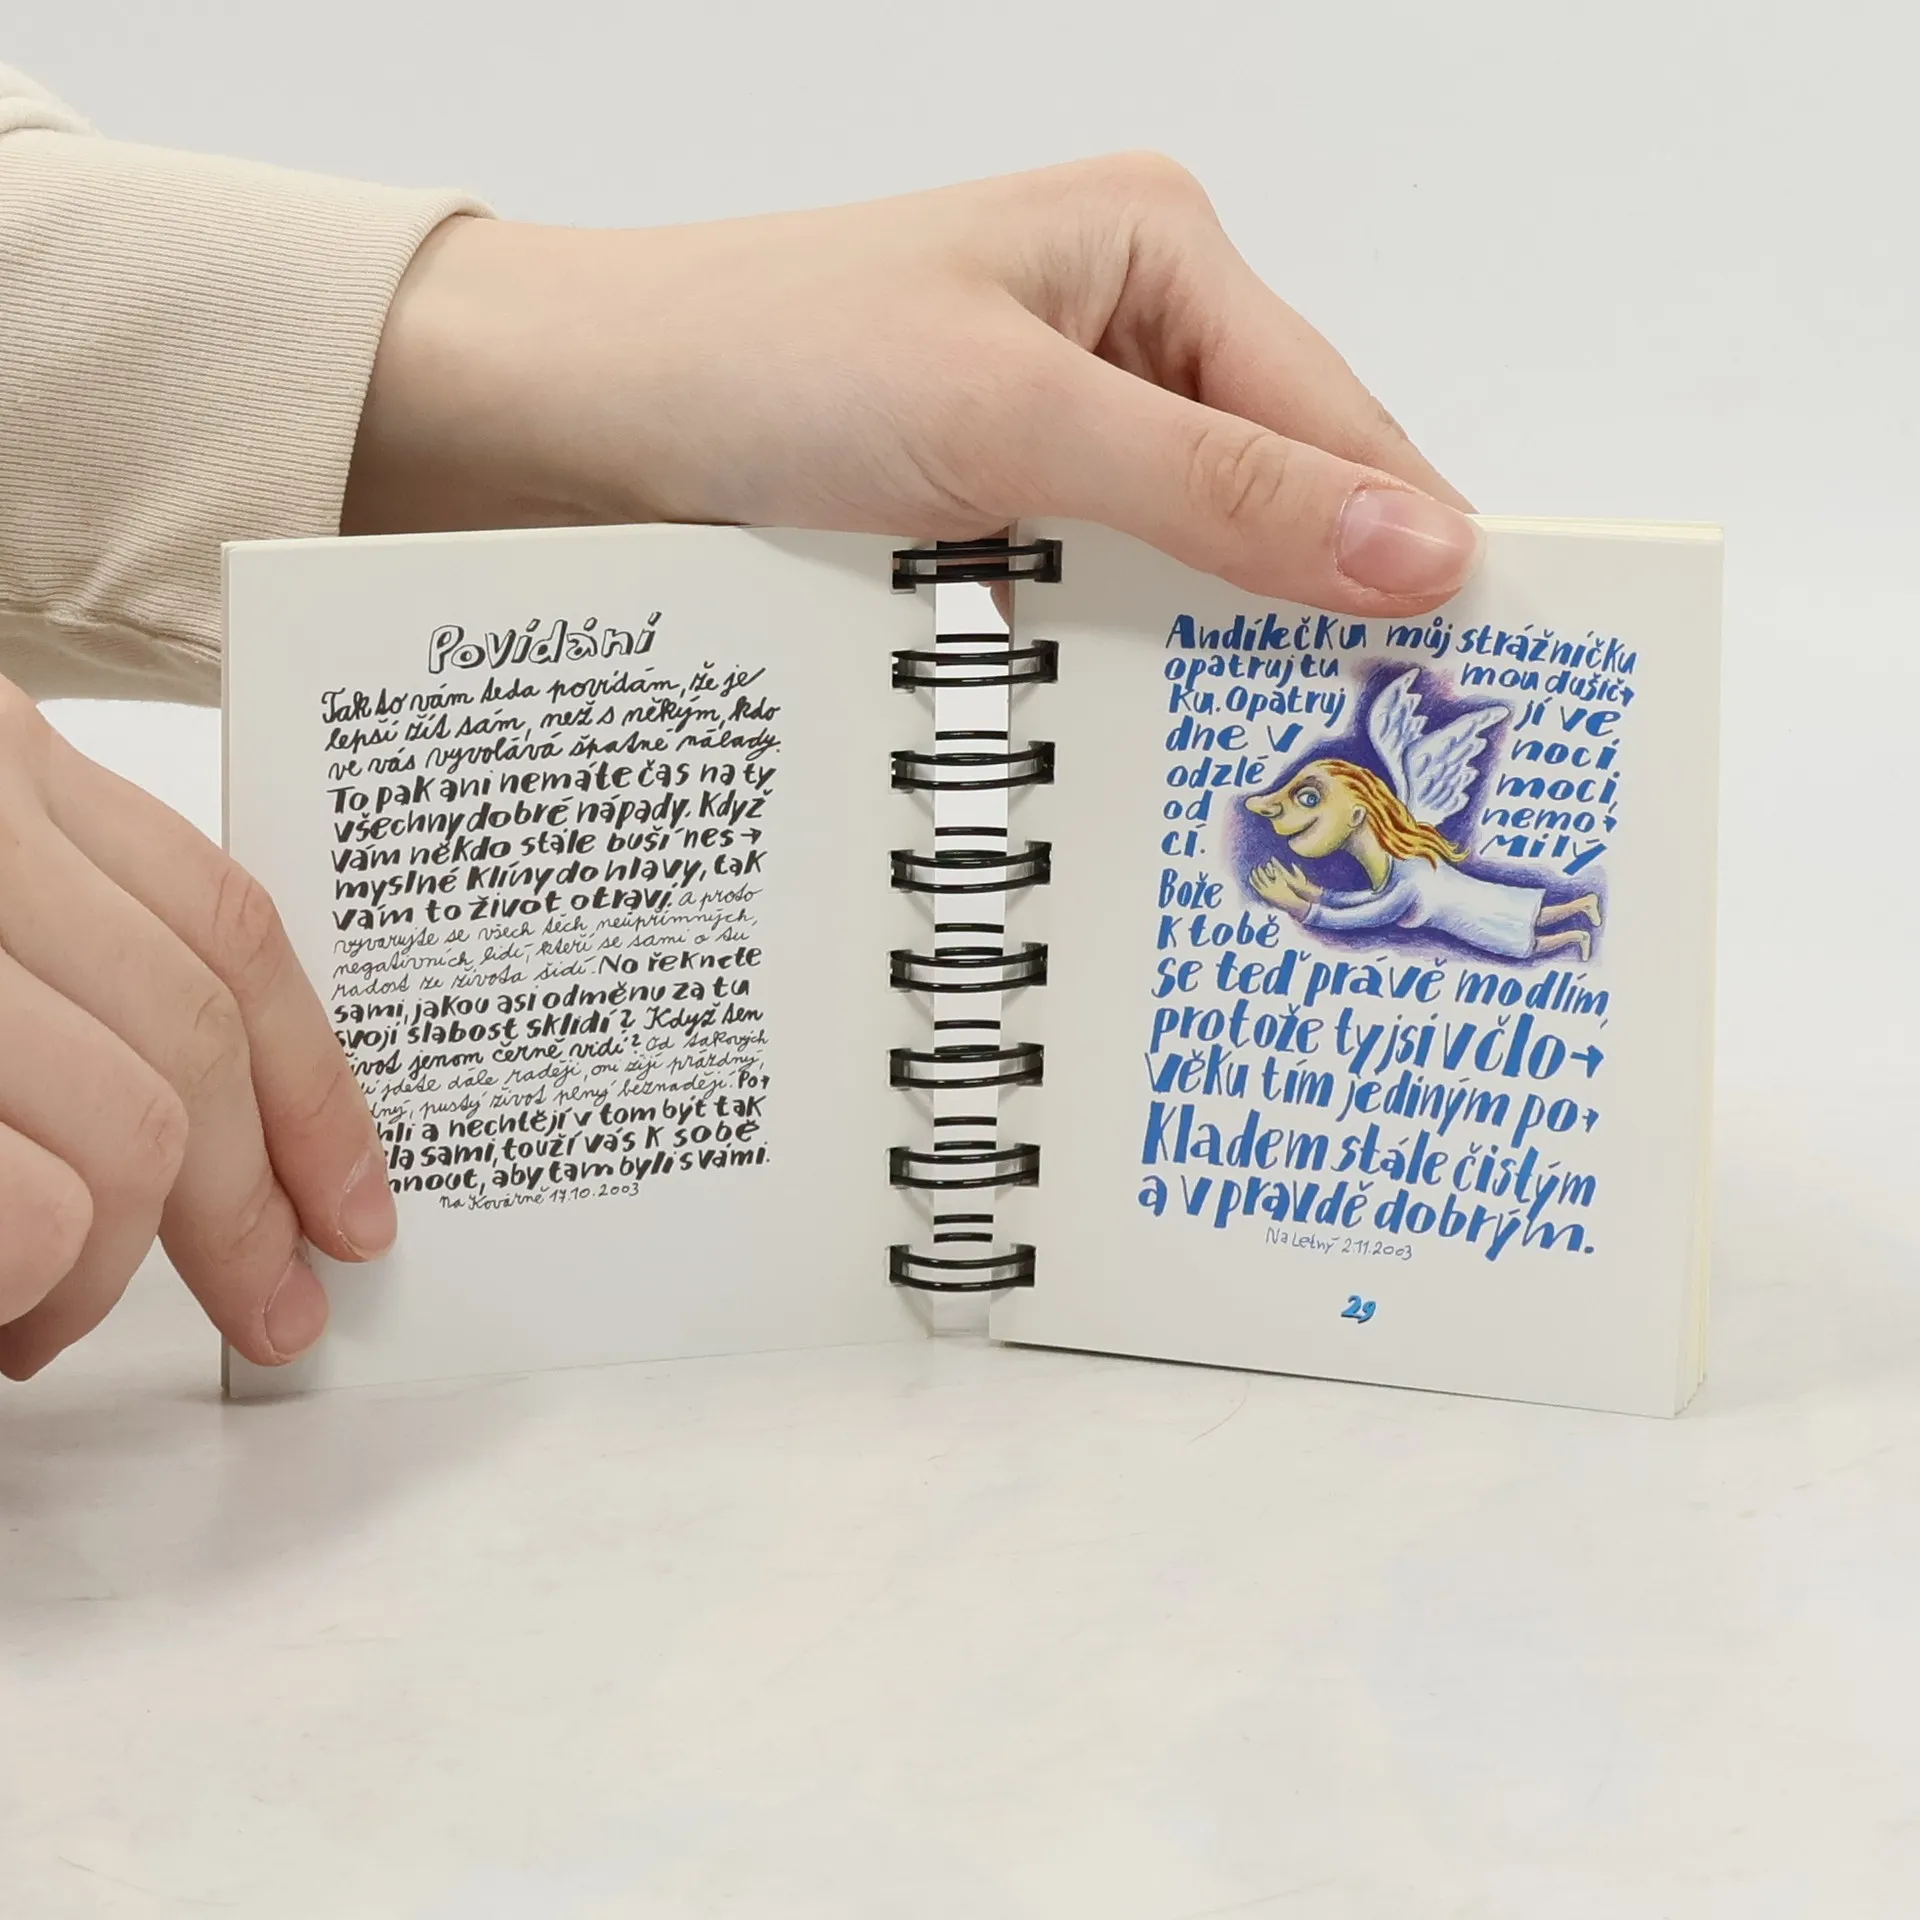 Povídání
Tak to vám teda povídám, že je
lepší žít sám, než s někým, kdo
ve vás vyvolává špatné nálady.
To pak ani nemáte čas na ty
všechny dobré nápady. Když
vám někdo stále buší nes→
myslné klíny do hlavy, tak
vám to život otráví. a proto
vyvarujte se všech těch neupřímných,
negativních lidí, kteří se sami o tu
radost ze života šidí. No řeknete
sami, jakou asi odměnu za tu
svoji slabost sklidí? Když ten
život jenom černě vidí? Od takových
jdete dále raději, oni žijí prázdný,
pustý život plný beznaději. Po→
a nechtějí v tom být tak
sami, touží vás k sobě
aby tam byli s vámi.
Na Kovárně 17.10.2003
Andílečku můj strážníčku
opatruj tu mou dušič→
ku. Opatruj jí ve
dne v nocí
od zlé moci,
od nemo→
cí. Milý
Bože
K tobě
se teď právě modlím,
protože ty jsi v člo→
věku tím jediným po→
Kladem stále čistým
a v pravdě dobrým.
Na Letný 2.11.2003
29